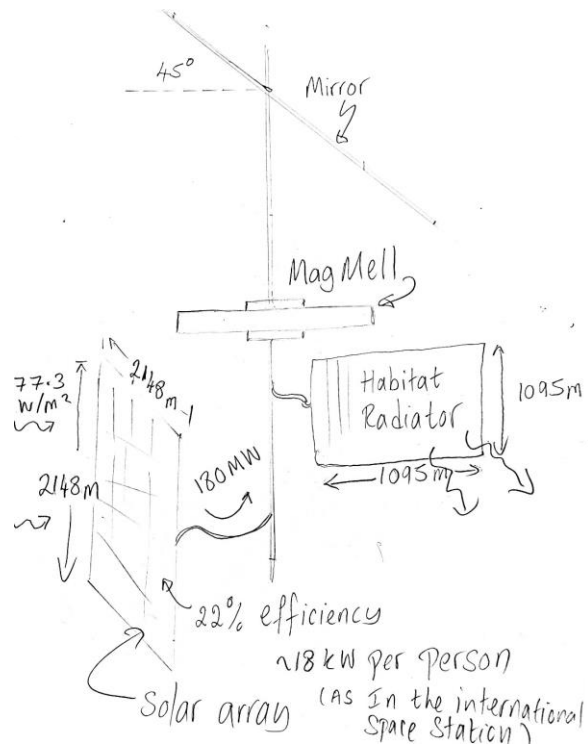 45°
Mirror
MagMell
77.3
W/m²
2148m
2148m
Habitat
Radiator
1095m
1095m
180MW
22% efficiency
~18kW per person
(As In the international
Space Station)
Solar array